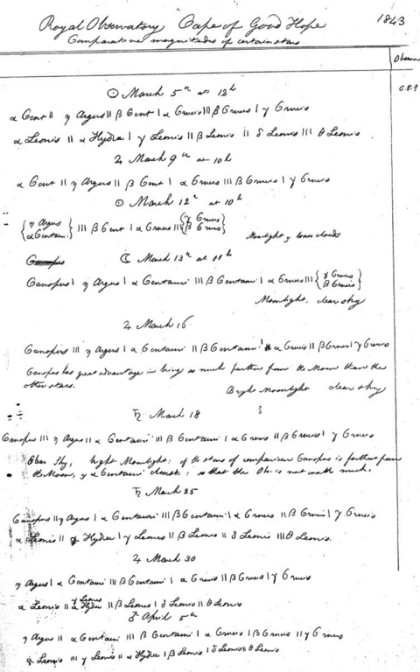 Royal Observatory Cape of Good Hope 1843
Comparative magnitudes of certain stars
Observer
☉ March 5th at 12h
α Cent II η Argus II β Cent I α Crucis III β Crucis I γ Crucis
α Leonis II α Hydrae I γ Leonis II β Leonis II δ Leonis III θ Leonis
♃ March 9th at 10h
α Cent II η Argus II β Cent I α Crucis III β Crucis I γ Crucis
☉ March 12th at 10h
{η Argus
α Centauri} III β Cent I α Crucis III {γ Crucis
β Crucis}
Moonlight & loose clouds
☾ March 13th at 11h
Canopus I η Argus I α Centauri III β Centauri I α Crucis III {γ Crucis
β Crucis}
Moonlight. clear sky
♃ March 16
Canopus III η Argus I α Centauri II β Centauri I α Crucis II β Crucis I γ Crucis
Canopus has great advantage in being so much farther from the Moon than the
other stars.
Bright Moonlight clear sky
♄ March 18
Canopus III η Argus II α Centauri III β Centauri I α Crucis II β Crucis I γ Crucis
Clear Sky, bright Moonlight: of the stars of comparison Canopus is farthest from
the Moon, & α Centauri nearest; so that the Obs. is not worth much.
♄ March 25
Canopus II η Argus I α Centauri III β Centauri I α Crucis II β Crucis I γ Crucis
α Leonis II α Hydrae I γ Leonis II β Leonis II δ Leonis III θ Leonis.
♃ March 30
η Argus I α Centauri III β Centauri I α Crucis II β Crucis I γ Crucis
α Leonis II γ Leonis
α Hydrae II β Leonis I δ Leonis II θ Leonis
April 5th
η Argus II α Centauri III β Centauri I α Crucis I β Crucis II γ Crucis
α Leonis III γ Leonis II α Hydrae I β Leonis I δ Leonis θ Leonis